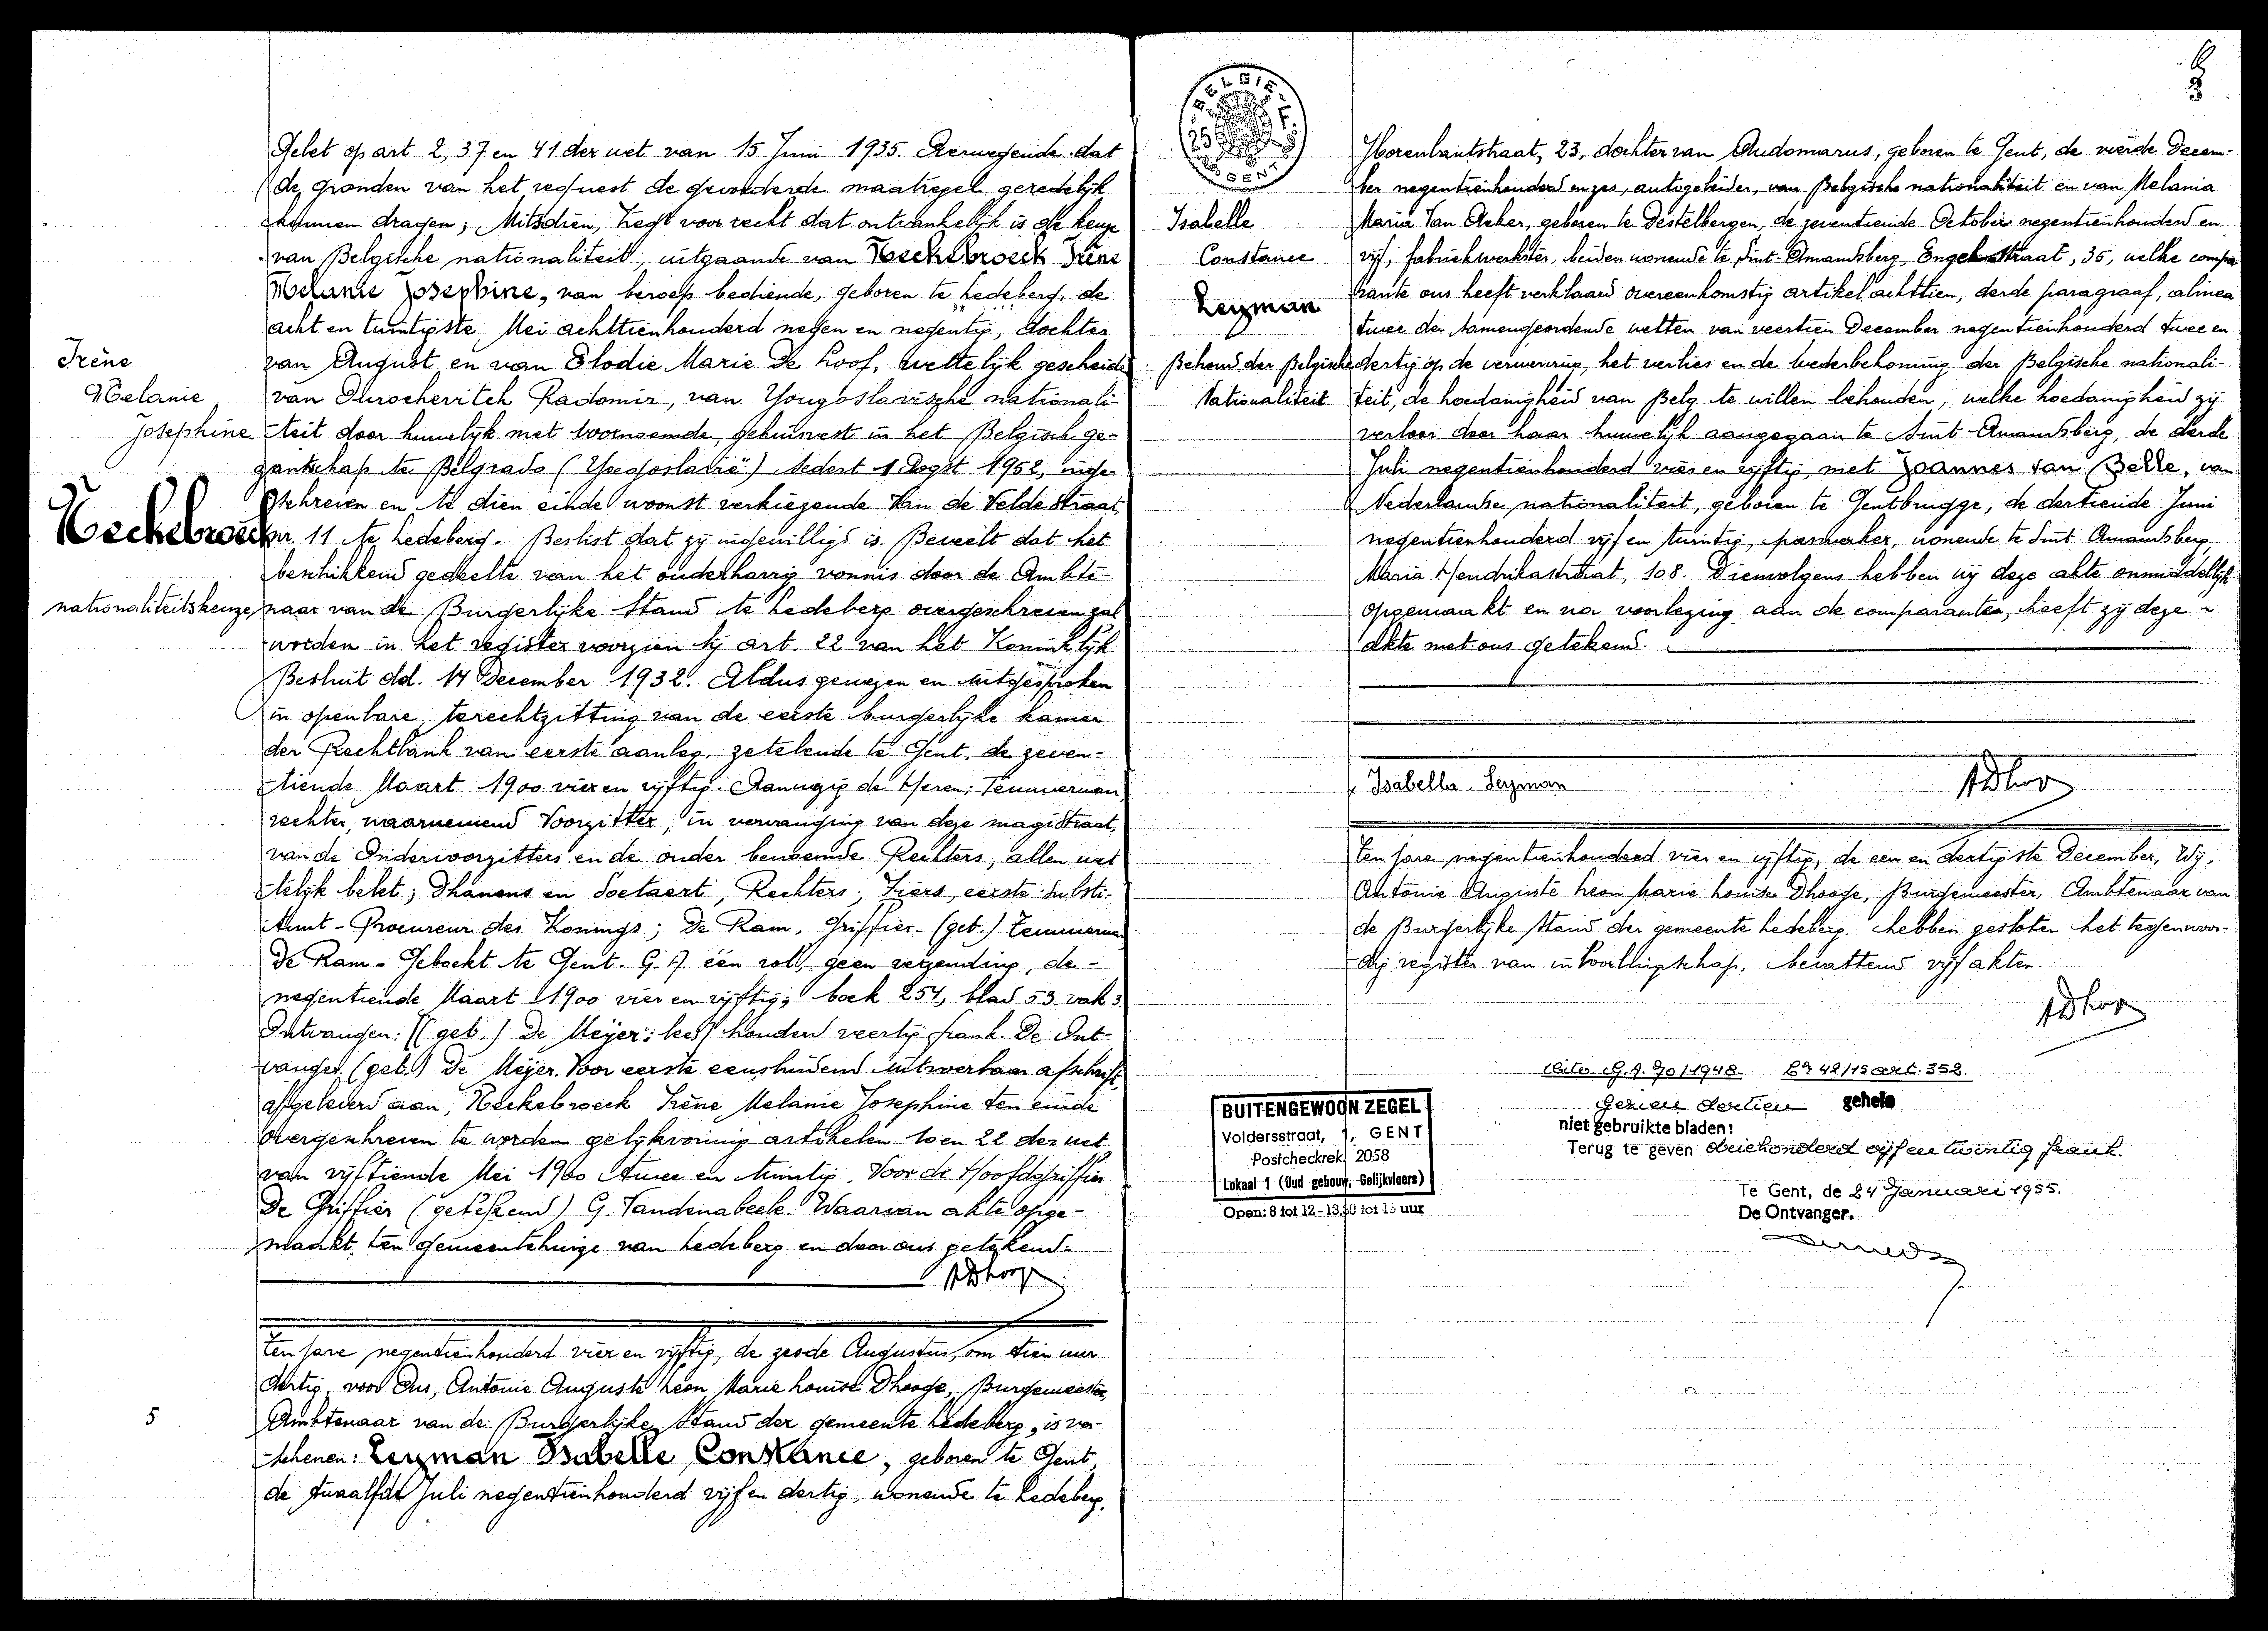 Gelet op art 2, 37 en 41 der wet van 15 Juni 1935. Overwegende dat
de gronden van het request de gevorderde maatregel geredelijk
kunnen dragen; Mitsdien, Zegt voor recht dat ontvankelijk is de keuze
van Belgische nationaliteit, uitgaande van Heckebroeck Irène
Melanie Josephine, van beroep bediende, geboren te Ledeberg, de
acht en twintigste Mei achttienhonderd negen en negentig, dochter
van August en van Elodie Marie De Loof, wettelijk gescheiden
van Radomir, van Yougoslavische nationali-
teit door huwelijk met voornoemde, gehuwest in het Belgisch ge-
zantschap te Belgrado (Yoegoslavië) sedert 1 Oogst 1952, inge-
schreven en te dien einde woonst verkiezende Van de Veldestraat,
nr. 11 te Ledeberg. Beslist dat zij ingewilligd is. Beveelt dat het
beschikkend gedeelte van het onderhavig vonnis door de Ambte-
naar van de Burgerlijke Stand te Ledeberg overgeschreven zal
worden in het register voorzien bij art. 22 van het Koninklijk
Besluit dd. 14 December 1932. Aldus gewezen en uitgesproken
in openbare terechtzitting van de eerste burgerlijke kamer
der Rechtbank van eerste aanleg, zetelende te Gent, de zeven-
tiende Maart 1900 vier en vijftig. Aanwezig de Heren; Temmerman,
rechter, waarnemend Voorzitter, in vervanging van deze magistraat,
van de Ondervoorzitters en de ouder benoemde Rechters, allen wet-
telijk belet; Dhanens en Soetaert, Rechters; Fiers, eerste Substi-
tuut-Procureur des Konings; De Ram, Griffier-(get.) Temmerman
De Ram - Geboekt te Gent. G.A. één rol, geen verzending, de -
negentiende Maart 1900 vier en vijftig; boek 254, blad 53 vak 3.
Ontvangen: (get.) De Meyer: honderd veertig frank. De Ont-
vanger (get.) De Meyer. Voor eerste eensluidend uitvoerbaar afschrift,
afgeleverd aan, Heckebroeck Irène Melanie Josephine ten einde
overgeschreven te worden gelijkvormig artikelen 10 en 22 der wet
van vijftiende Mei 1900 twee en twintig. Voor de Hoofdgriffier
De Griffier (getekend) G. Vandenabeele. Waarvan akte opge-
maakt ten gemeentehuize van Ledeberg en door ons getekend.
ADhooge
Irène
Melanie
Josephine
Heckebroeck
nationaliteitskeuze
5
Ten jare negentienhonderd vier en vijftig, de zesde Augustus, om tien uur
dertig, voor Ons, Antonie Auguste Leon Marie Louise Dhooge, Burgemeester,
Ambtenaar van de Burgerlijke Stand der gemeente Ledeberg, is ver-
schenen: Leyman Isabelle Constance, geboren te Gent,
de twaalfde Juli negentienhonderd vijf en dertig, wonende te Ledeberg,
BELGIE
25
GENT
Isabelle
Constance
Leyman
Behoud der Belgische
Nationaliteit
23, dochter van Audomarus, geboren te Gent, de vierde Decem-
ber negentienhonderd en zes, autogeleider, van Belgische nationaliteit en van Melania
Maria Van Acker, geboren te Destelbergen, de zeventiende October negentienhonderd en
vijf, fabriekwerkster, beiden wonende te Sint-Amandsberg, Engelstraat, 35, welke compa-
rante ons heeft verklaard overeenkomstig artikel achttien, derde paragraaf, alinea
twee der samengeordende wetten van veertien December negentienhonderd twee en
dertig op de verwerving, het verlies en de wederbekoming der Belgische nationali-
teit, de hoedanigheid van Belg te willen behouden, welke hoedanigheid zij
verloor door haar huwelijk aangegaan te Sint-Amandsberg, de derde
Juli negentienhonderd vier en vijftig, met Joannes Van Belle, van
Nederlandse nationaliteit, geboren te Gentbrugge, de dertiende Juni
negentienhonderd vijf en twintig, paswerker, wonende te Sint-Amandsberg
Maria Hendrikastraat, 108. Dienvolgens hebben wij deze akte onmiddellijk
opgemaakt en na voorlezing aan de comparante, heeft zij deze
akte met ons getekend.
Isabella Leyman
ADhooge
Ten jare negentienhonderd vier en vijftig, de een en dertigste December, Wij,
Antonie Auguste Leon Marie Louise Dhooge, Burgemeester, Ambtenaar van
de Burgerlijke Stand der gemeente Ledeberg, hebben gesloten het tegenwoor-
dig register van inboorlingschap, bevattend vijf akten.
ADhooge
BUITENGEWOON ZEGEL
Voldersstraat, 1, GENT
Postcheckrek. 2058
Lokaal 1 (Oud gebouw, Gelijkvloers)
Open: 8 tot 12 - 13,30 tot 15 uur
G.A. 90/1948. 42/15 art. 352.
Gezien dertien gehele
niet gebruikte bladen:
Terug te geven driehonderd vijf en twintig frank.
Te Gent, de 24 Januari 1955.
De Ontvanger.